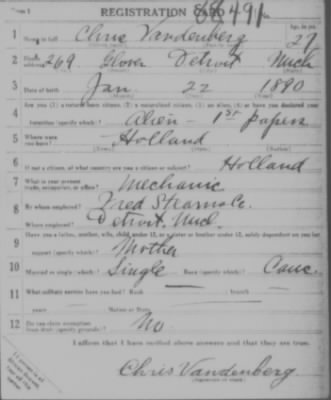 Form 1 REGISTRATION CARD 88491
1 Name in full Chris Vandenberg 27
2 Home address 269 Glover Detroit Mich
3 Date of birth Jan 22 1890
4 Are you (1) a natural born citizen, (2) a naturalized citizen, (3) an alien, (4) or have you declared your
intention (specify which)? Alien - 1st papers
5 Where were you born? Holland
6 If not a citizen, of what country are you a citizen or subject? Holland
7 What is your present trade, occupation, or office? Mechanic
8 By whom employed? Fred
Where employed? Detroit, Mich.
9 Have you a father, mother, wife, child under 12, or a sister or brother under 12, solely dependent on you for
support (specify which)? Mother
10 Married or single (which)? Single Race (specify which)? Cauc.
11 What military service have you had? Rank branch
years Nation or State
12 Do you claim exemption from draft (specify grounds)? No
I affirm that I have verified above answers and that they are true.
Chris Vandenberg